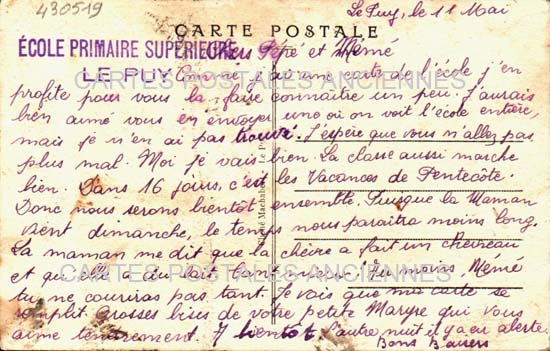 430519
Le Puy, le 11 Mai
CARTE POSTALE
ÉCOLE PRIMAIRE SUPÉRIEURE
LE PUY
Chers Pépé et Mémé
Comme j'ai une carte de l'école j'en
profite pour vous la faire connaître un peu. J'aurais
bien aimé vous en envoyer une où on voit l'école entière,
mais je n'en ai pas trouvé. J'espère que vous n'allez pas
plus mal. Moi je vais bien. La classe aussi marche
bien. Dans 16 jours, c'est les Vacances de Pentecôte.
Donc nous serons bientôt ensemble. Puisque la Maman
vient dimanche, le temps nous paraîtra moins long.
La maman me dit que la chèvre a fait un chevreau
et qu'elle a du lait. Au moins, Mémé
tu ne courиras pas tant. Je vois que ma carte se
remplit. Grosses bises de votre petite Maryse qui vous
aime tendrement. A bientôt. L'autre nuit il y a eu alerte.
Bons Baisers
Cliché Machabert, Le Puy
CARTES POSTALES ANCIENNES
CARTES POSTALES ANCIENNES